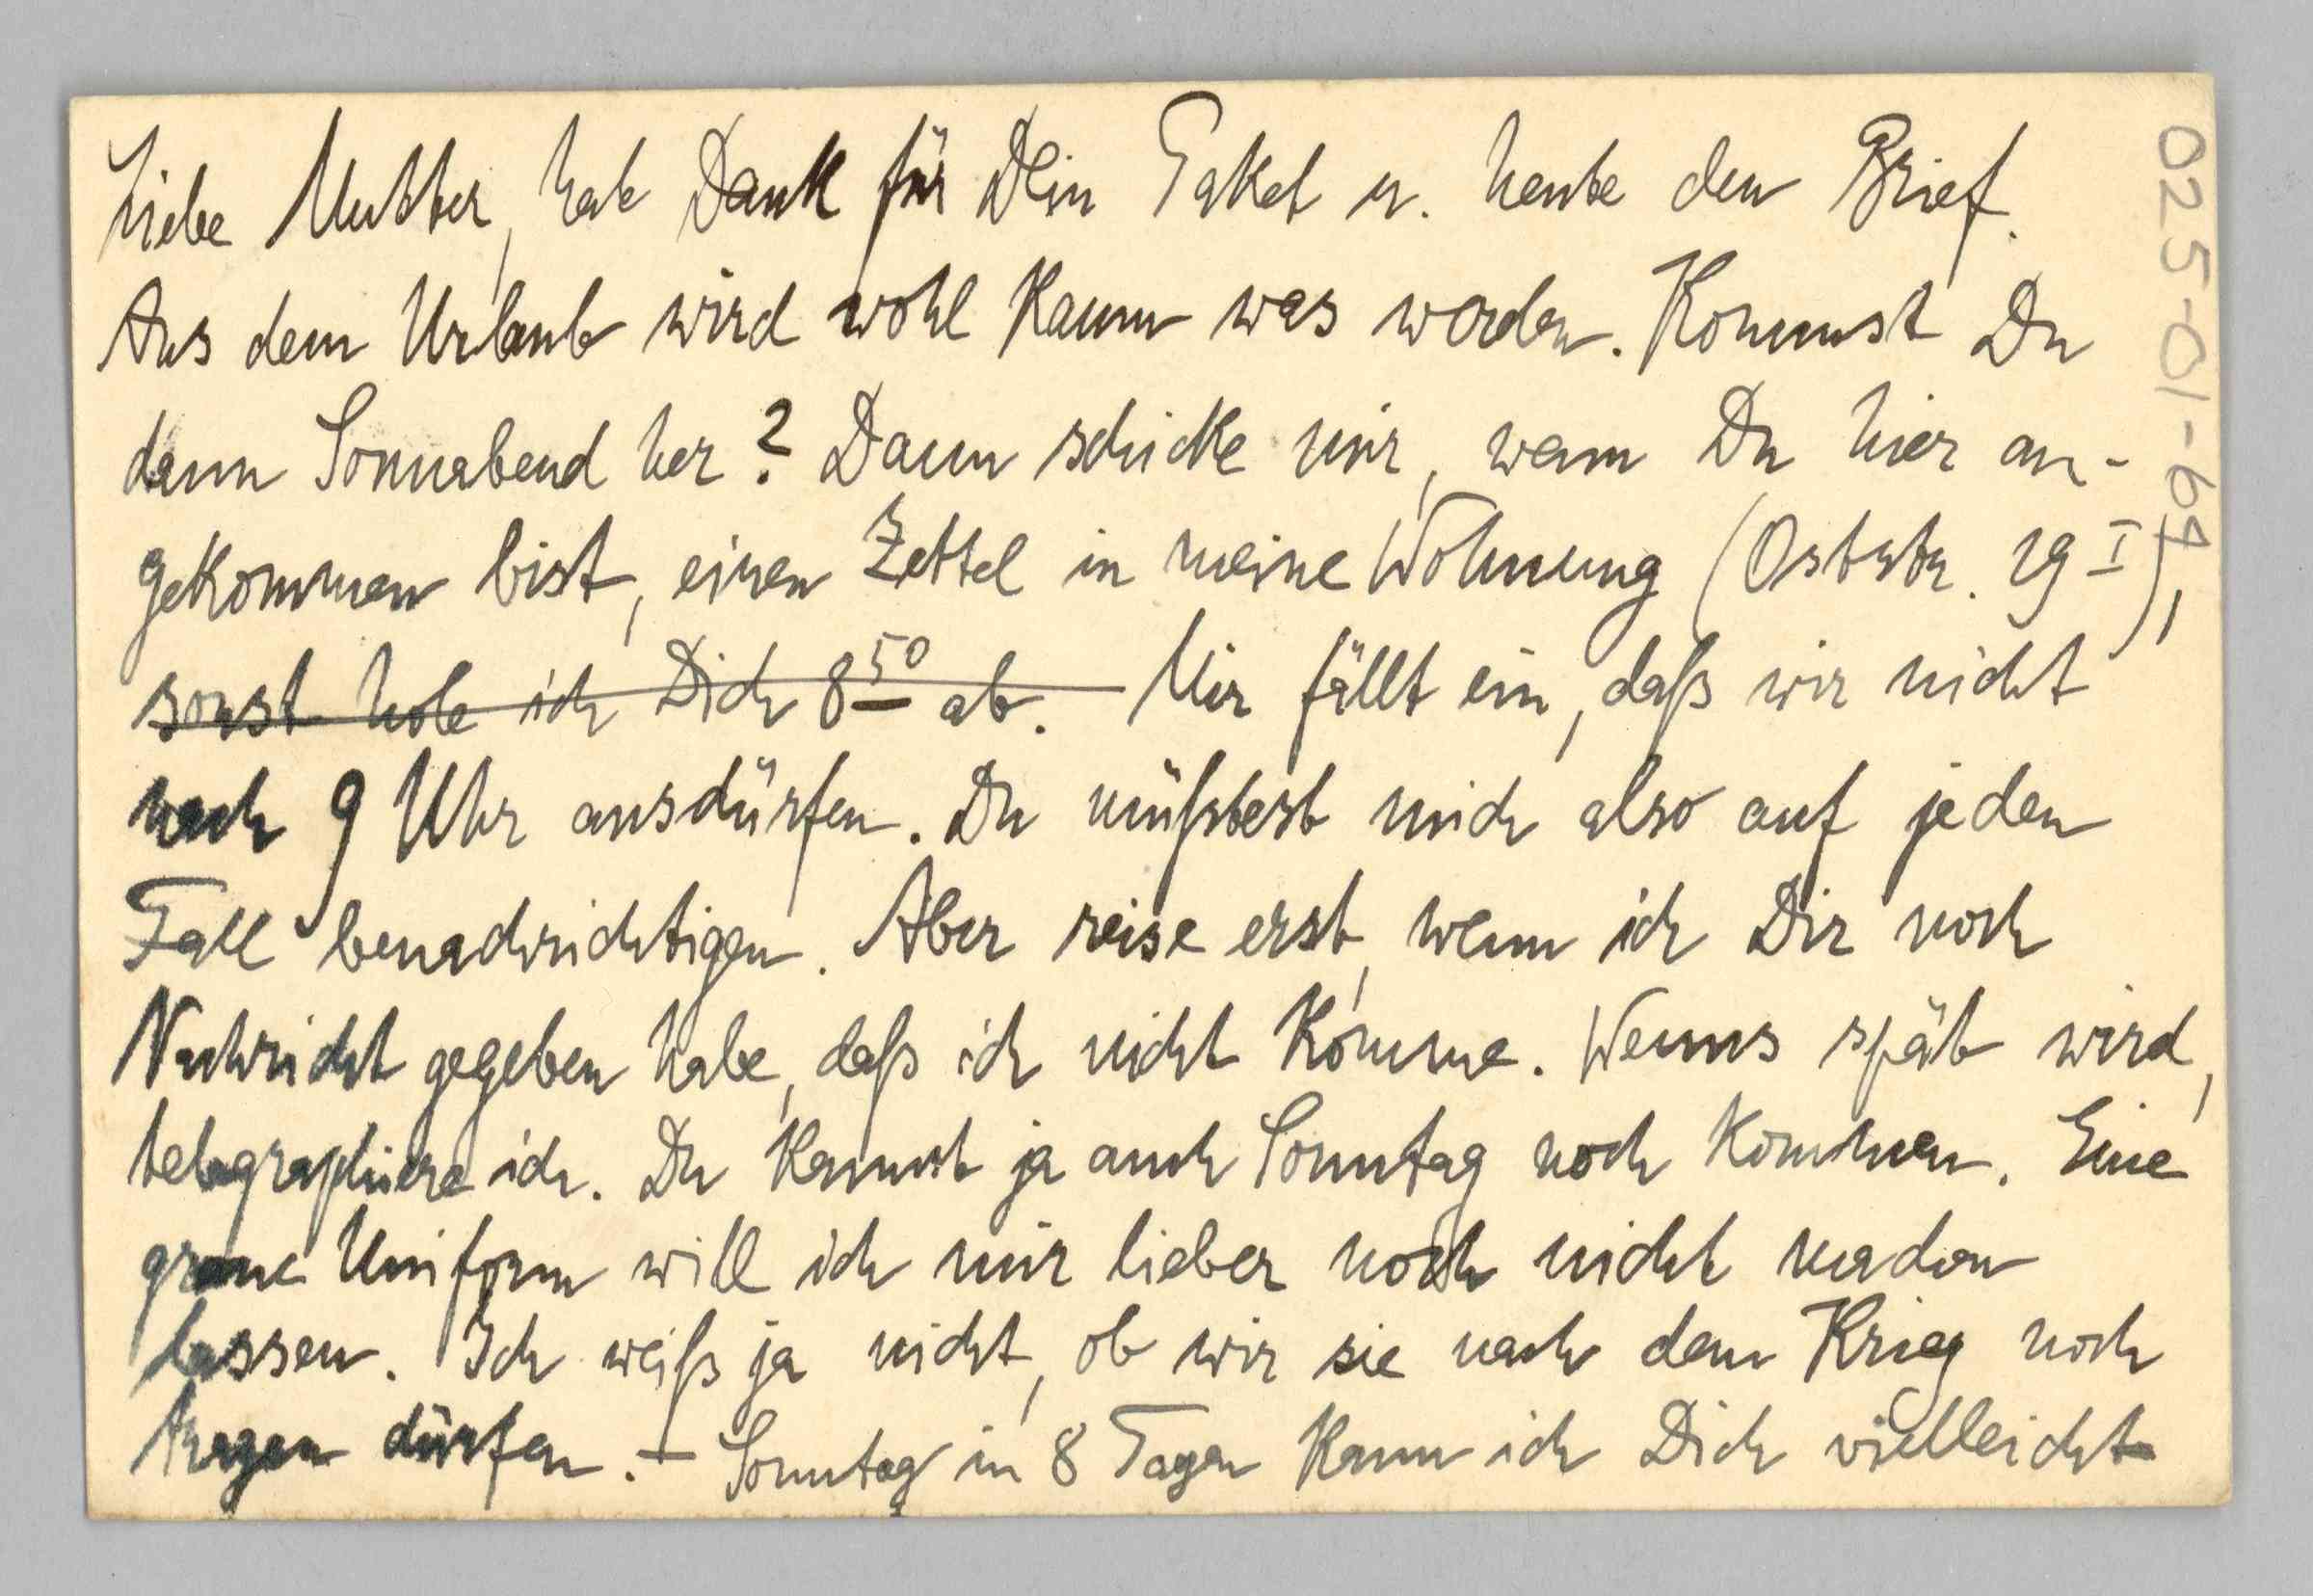 Liebe Mutter, hab Dank für Dein Paket u. heute den Brief.
Aus dem Urlaub wird wohl kaum was werden. Kommst Du
dann Sonnabend her? Dann schicke mir, wenn Du hier an-
gekommen bist, einen Zettel in meine Wohnung (Oststr. 19 I),
sonst hole ich Dich 8 50 ab. Mir fällt ein, daß wir nicht
nach 9 Uhr ausdürfen. Du müßtest mich also auf jeden
Fall benachrichtigen. Aber reise erst, wenn ich Dir noch
Nachricht gegeben habe, daß ich nicht komme. Wenns spät wird,
telegraphiere ich. Du kannst ja auch Sonntag noch kommen. Eine
graue Uniform will ich mir lieber noch nicht machen
lassen. Ich weiß ja nicht, ob wir sie nach dem Krieg noch
tragen dürfen. – Sonntag in 8 Tagen kann ich Dich vielleicht
025-01-69